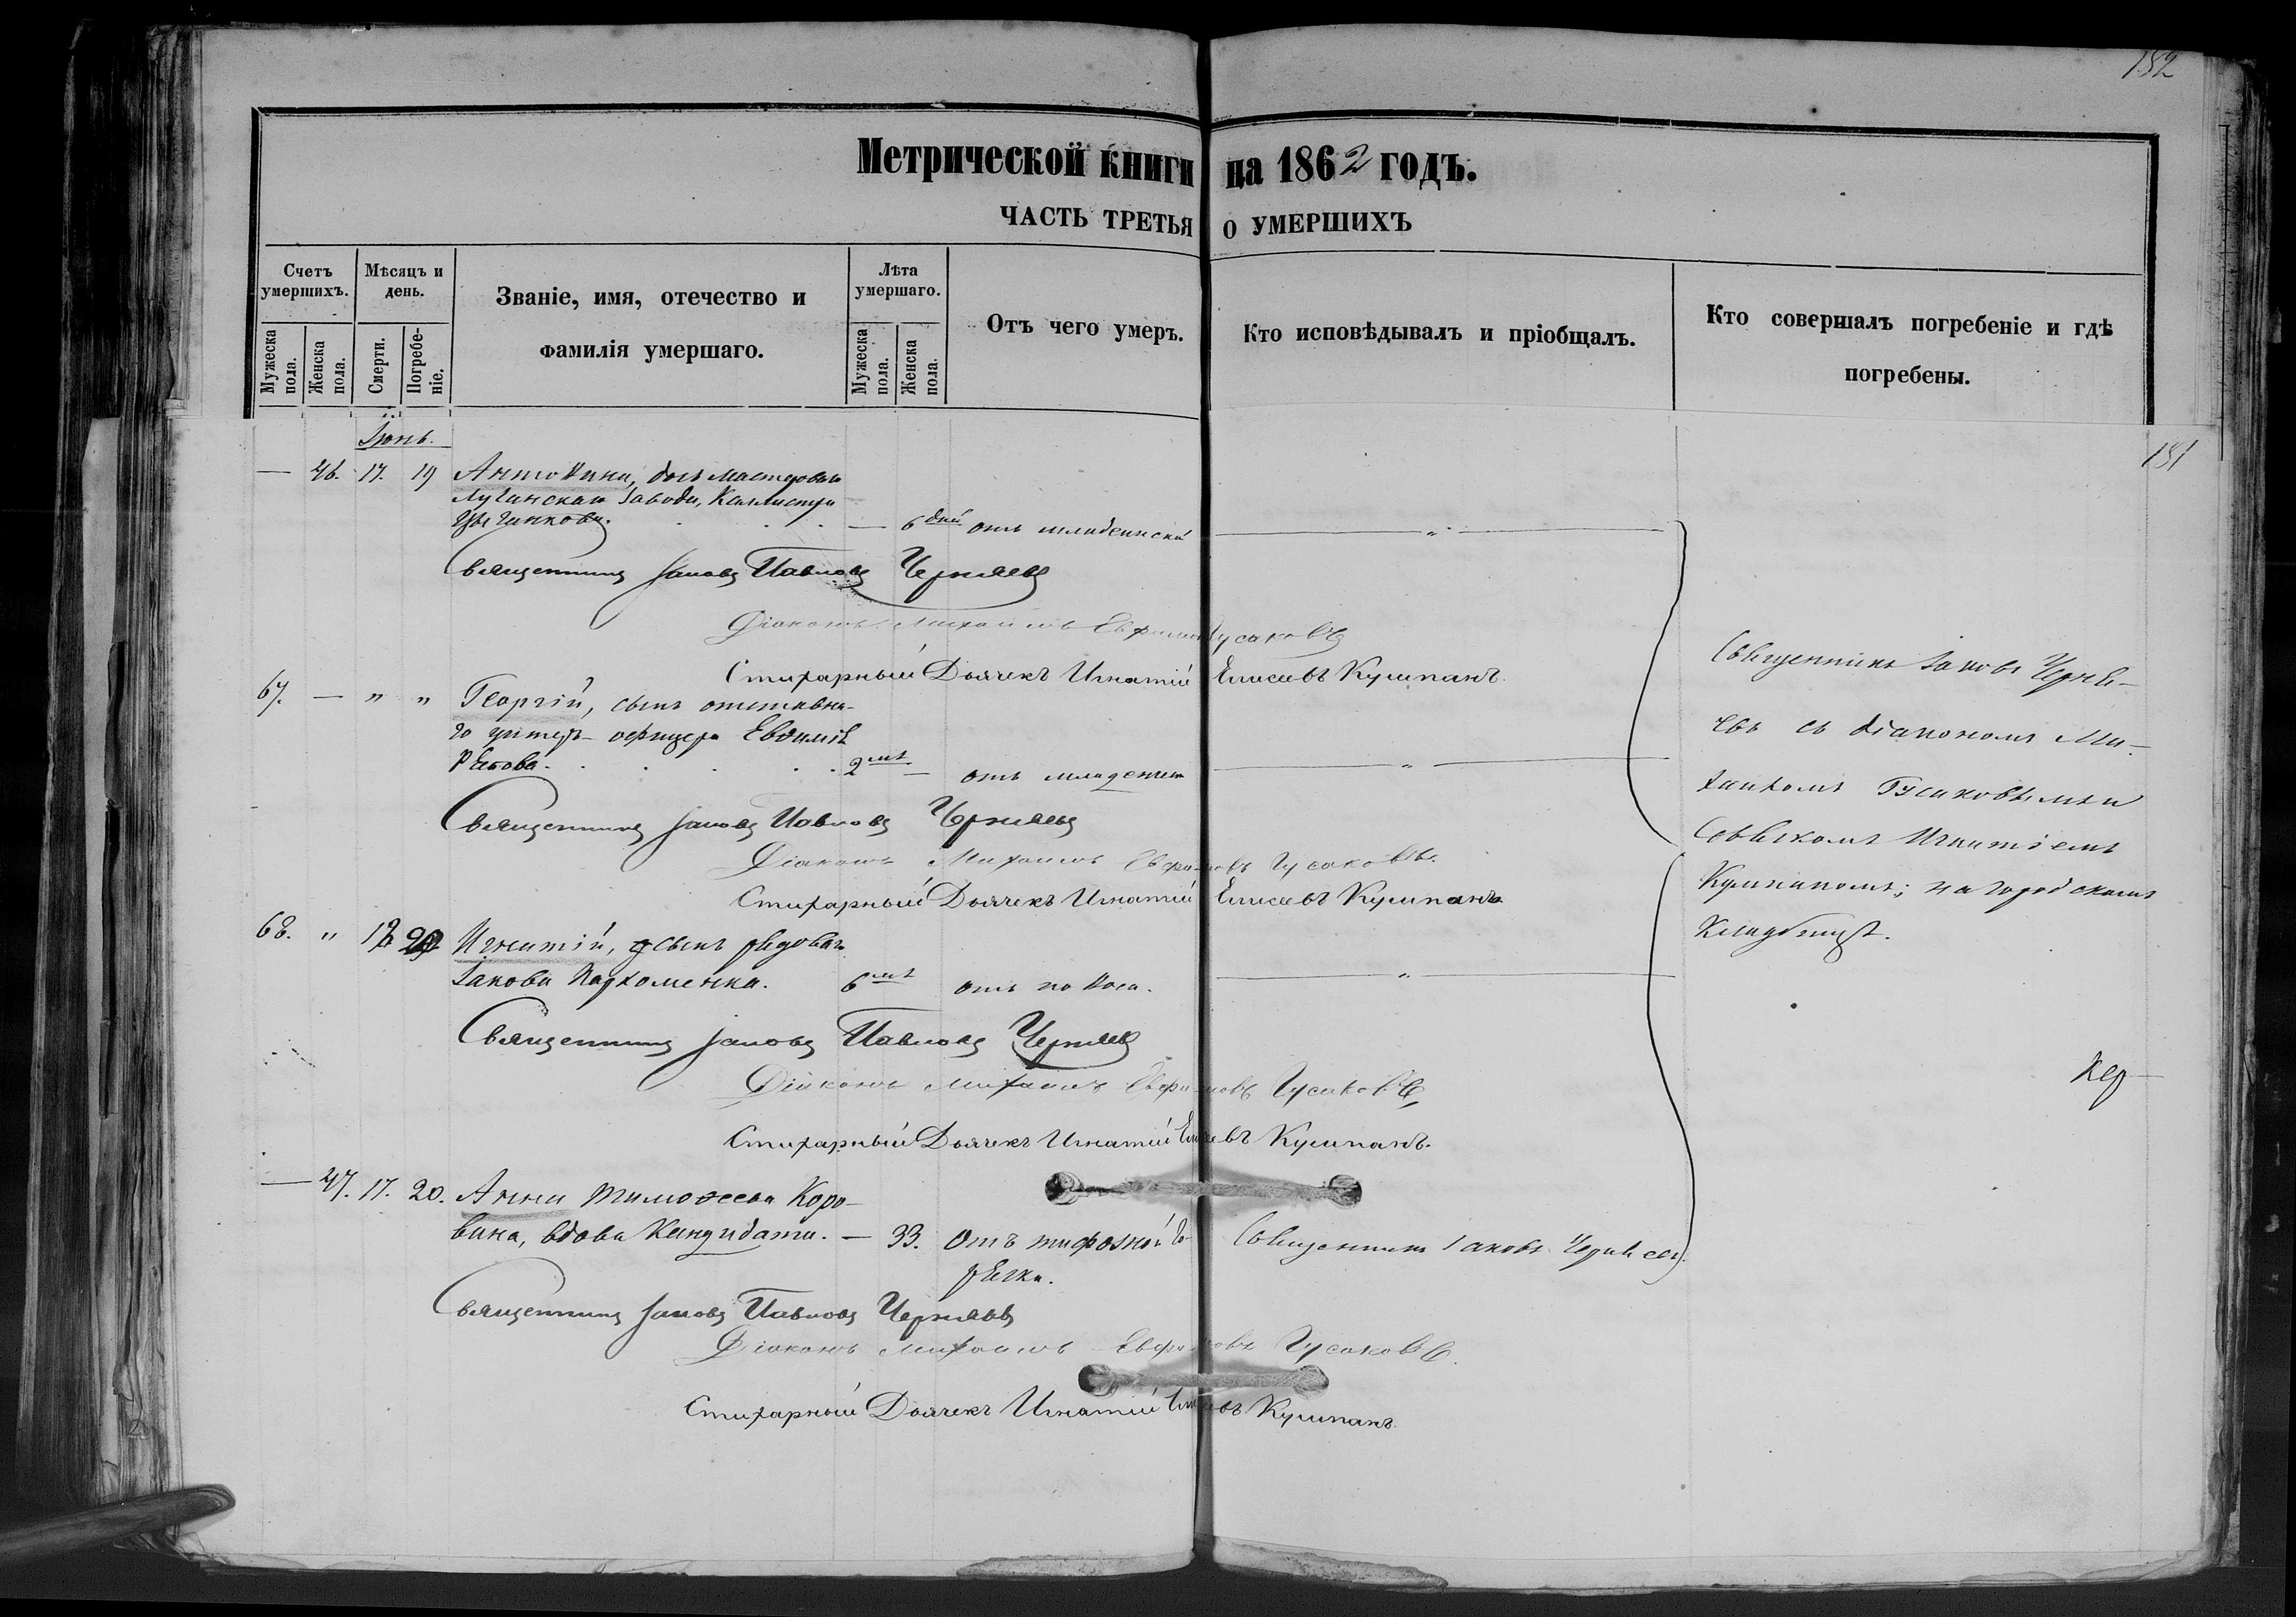 182
Метрической книги на 1862 годъ.
ЧАСТЬ ТРЕТЬЯ О УМЕРШИХЪ
Счетъ умершихъ.
Мѣсяцъ и день.
Званіе, имя, отечество и фамилія умершаго.
Лѣта умершаго.
Отъ чего умеръ.
Кто исповѣдывалъ и пріобщалъ.
Кто совершалъ погребеніе и гдѣ погребены.
Мужеска пола.
Женска пола.
Смерти.
Погребе-ніе.
Мужеска пола.
Женска пола.
Іюнь.
181
— 46. 17. 19 Антонина, дочь мастероваго
Луганскаго завода, Каллистра
— 6 дней отъ младенческой — " —
Священникъ Іаковъ Павловъ Черняевъ
Діаконъ Михаилъ Евфимовъ Гусаковъ
Стихарный Дьячекъ Игнатій Елисеевъ Кулипанъ.
67. — " " Георгій, сынъ отставна-
го унтеръ-офицера Евдокима
2 лѣтъ — отъ младенческ — " —
Священникъ Іаковъ Павловъ Черняевъ
Діаконъ Михаилъ Евфимовъ Гусаковъ.
Стихарный Дьячекъ Игнатій Елисеевъ Кулипанъ
68. " 18 20 Игнатій, сынъ рядоваго
Іакова Пархоменка. 6 лѣтъ отъ поноса. — " —
Священникъ Іаковъ Павловъ Черняевъ
Діаконъ Михаилъ Евфимовъ Гусаковъ
Стихарный Дьячекъ Игнатій Елисеевъ Кулипанъ.
— 47. 17. 20. Анна Тимофеева Коро-
вина, вдова Кандидата. — 33. Отъ тифозной го- Священникъ Іаковъ Черняевъ.
рячки.
Священникъ Іаковъ Павловъ Черняевъ
Діаконъ Михаилъ Евфимовъ Гусаковъ.
Стихарный Дьячекъ Игнатій Елисеевъ Кулипанъ.
Священникъ Іаковъ Черня-
евъ съ діакономъ Ми-
хаиломъ Гусаковымъ и
Игнатіемъ
Кулипаномъ; на городскомъ
Кладбищѣ.